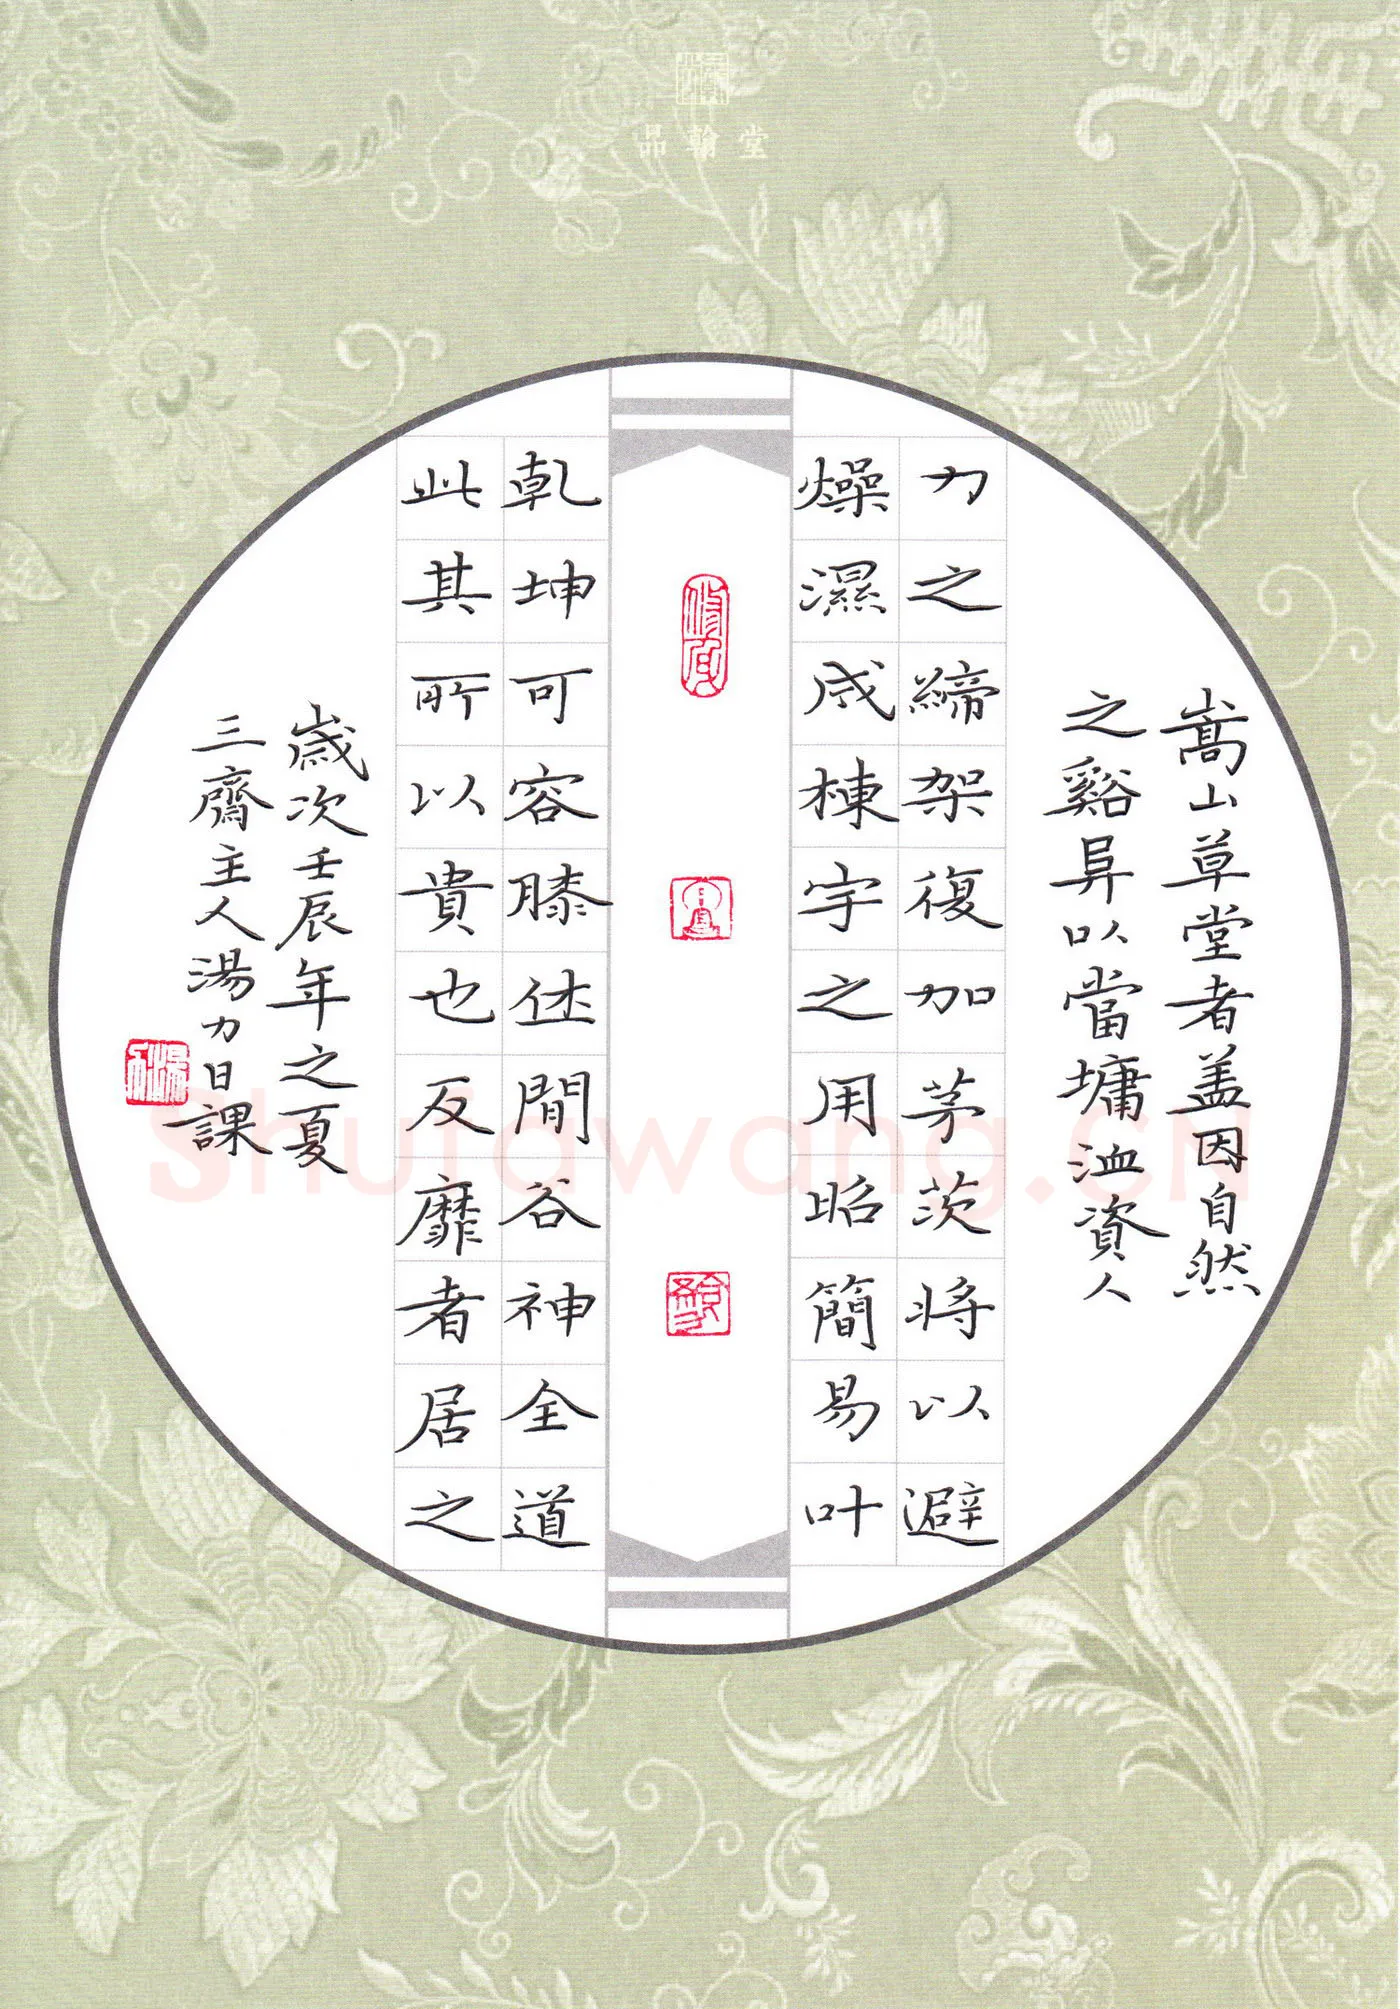 品翰堂
嵩山草堂者盖因自然
之谿阜以當墉洫資人
力之締架復加茅茨将以避
燥濕成棟宇之用昭簡易叶
乾坤可容膝休閒谷神全道
此其所以貴也及靡者居之
歲次壬辰年之夏
三齋主人湯力日課
Shufawang.CN